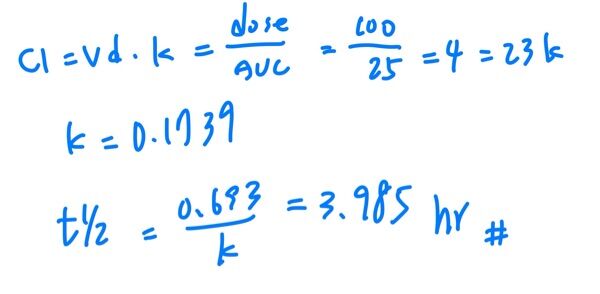 Cl = Vd · k = dose/AUC = 100/25 = 4 = 23k
k = 0.1739
t½ = 0.693/k = 3.985 hr #